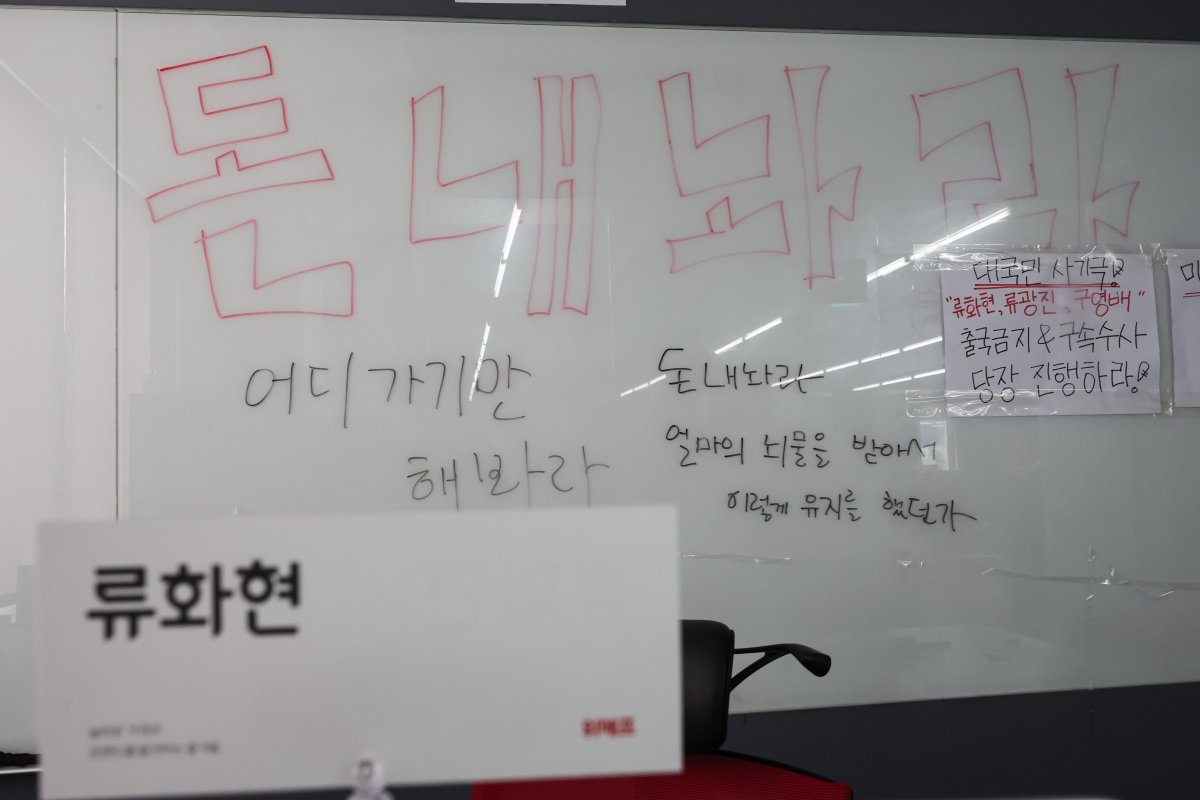 돈 내놔라
어디 가기만
해봐라
돈내놔라
얼마의 뇌물을 받아서
이렇게 유지를 했던가
대국민 사기극!
"류화현, 류광진, 구영배"
출국금지 & 구속수사
당장 진행하라!
류화현
위메프